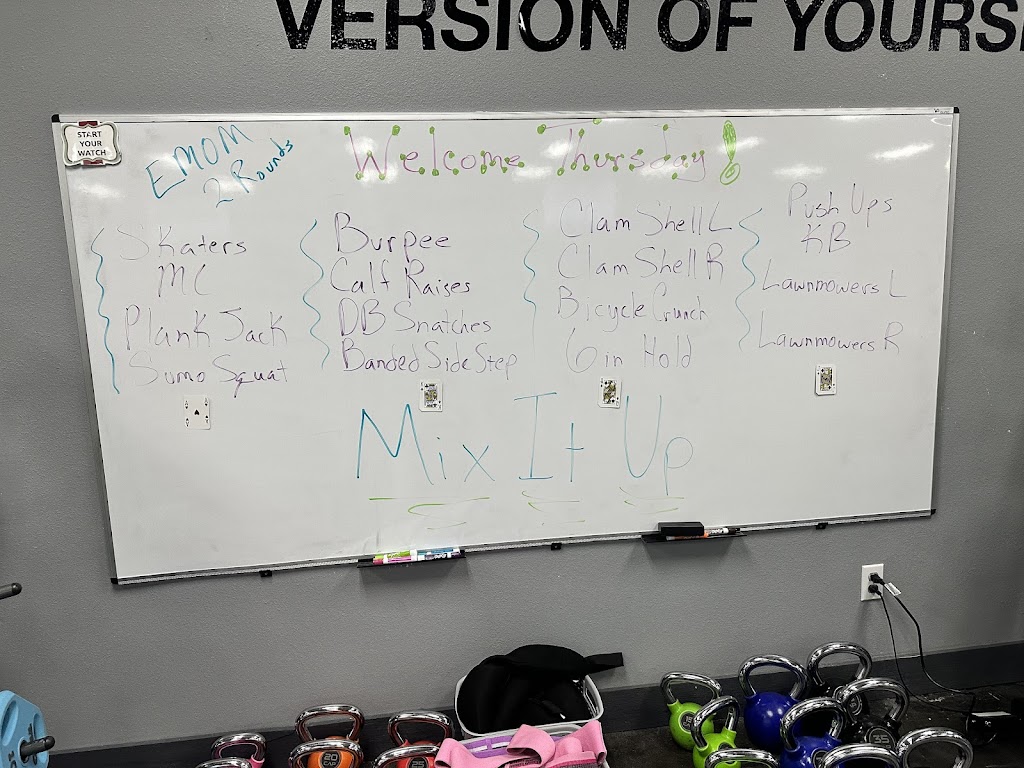 VERSION OF YOURS
START
YOUR
WATCH
EMOM
2 Rounds
Welcome Thursday!
Skaters
MC
Plank Jack
Sumo Squat
Burpee
Calf Raises
DB Snatches
Banded Side Step
Clam Shell L
Clam Shell R
Bicycle Crunch
6 in Hold
Push Ups
KB
Lawnmowers L
Lawnmowers R
Mix It Up
20
CAP
25
35